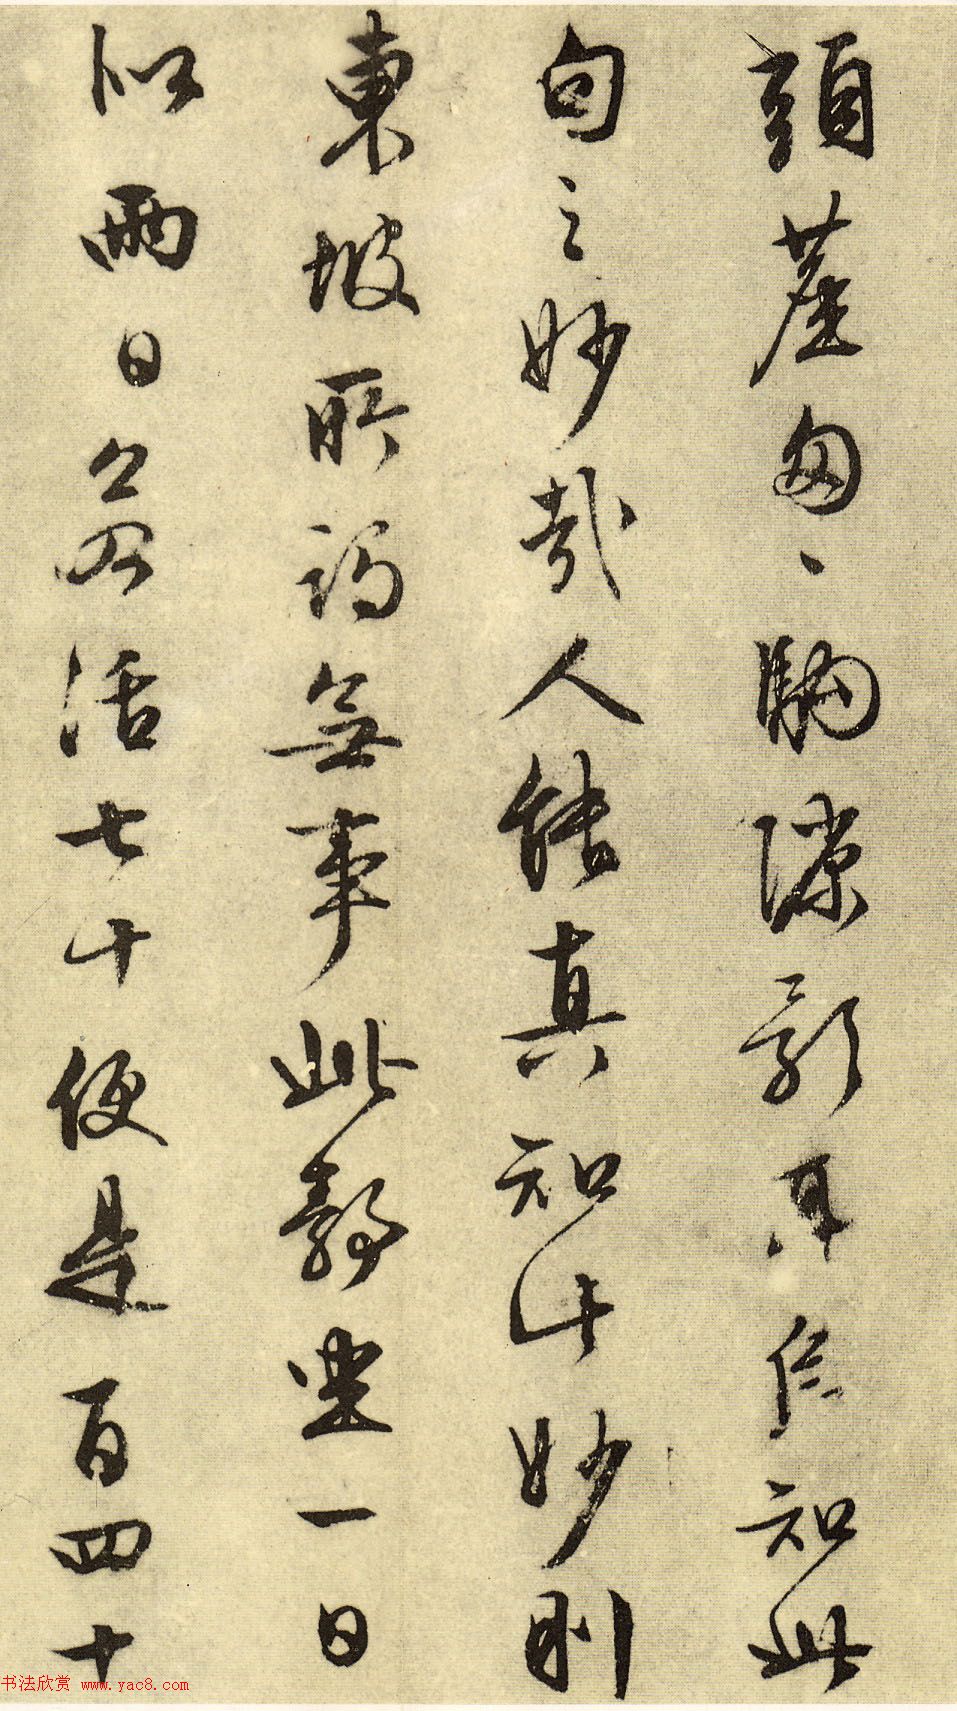 頭塵匆〻駒隙影耳信知此
句之妙哉人能真知此妙則
東坡所謂無事此靜坐一日
似兩日若活七十便是百四十
书法欣赏 www.yac8.com